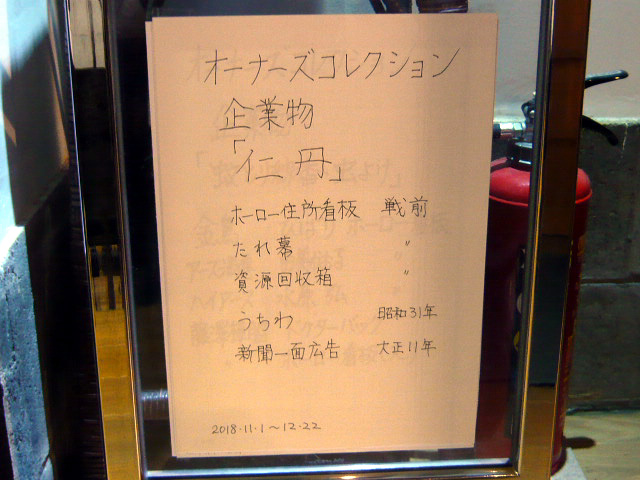 オーナーズコレクション
企業物
「仁丹」
ホーロー住所看板 戦前
たれ幕 〃
資源回収箱 〃
うちわ 昭和31年
新聞一面広告 大正11年
2018.11.1～12.22